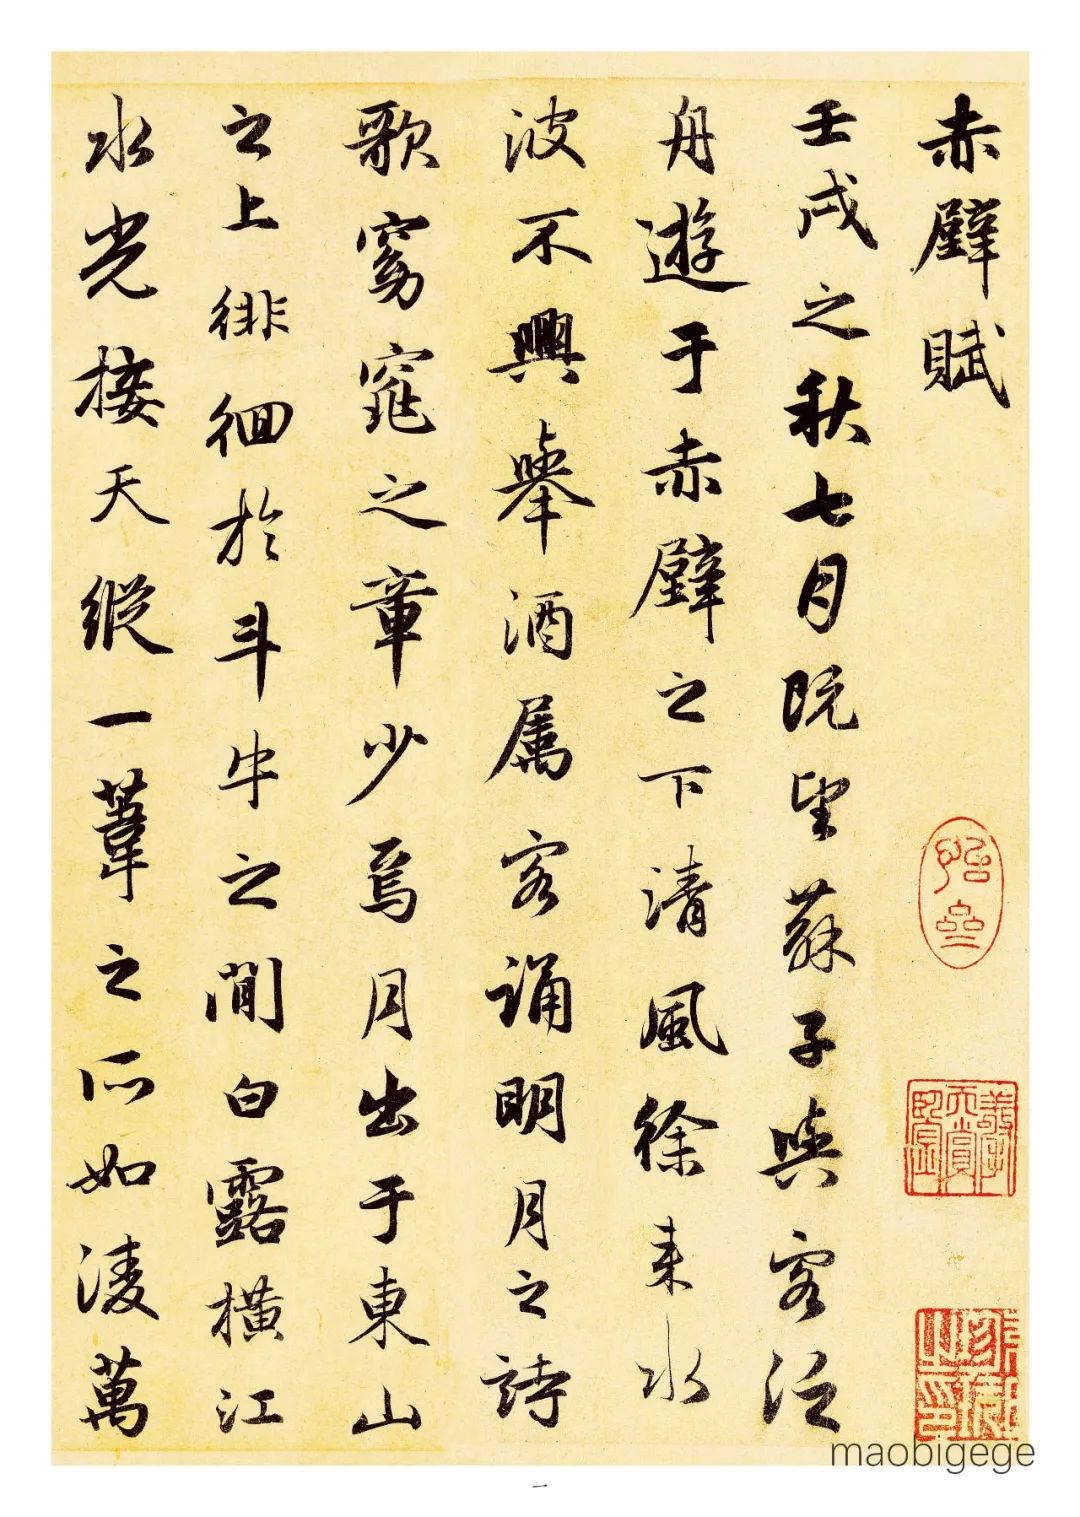 赤壁賦
壬戌之秋七月既望蘇子與客泛
舟遊于赤壁之下清風徐来水
波不興舉酒属客誦明月之詩
歌窈窕之章少焉月出于東山
之上徘徊於斗牛之間白露橫江
水光接天縱一葦之所如凌萬
maobigege
一